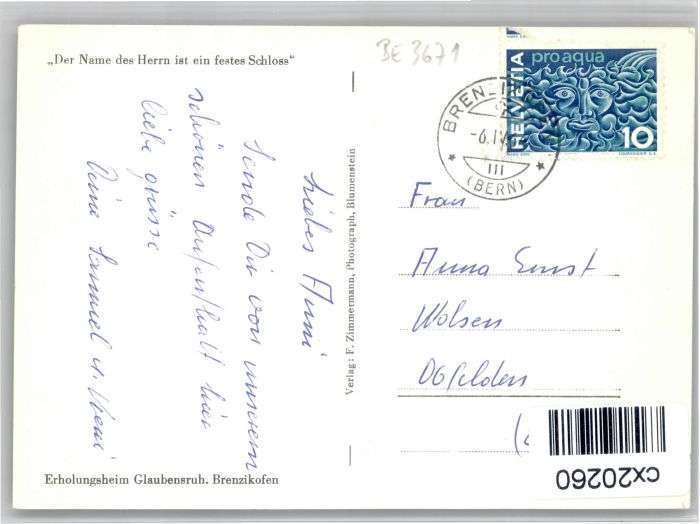 „Der Name des Herrn ist ein festes Schloss“
BE 3671
HELVETIA
pro aqua
10
BRENZI
-6.IV
III
(BERN)
Liebes Anni
Sende Dir von unserem
schönen Aufenthalt hier
liebe Grüsse
Deine
Verlag: F. Zimmermann, Photograph, Blumenstein
Frau
Anna Ernst
Wolsen
Obfelden
Erholungsheim Glaubensruh. Brenzikofen
cx20260